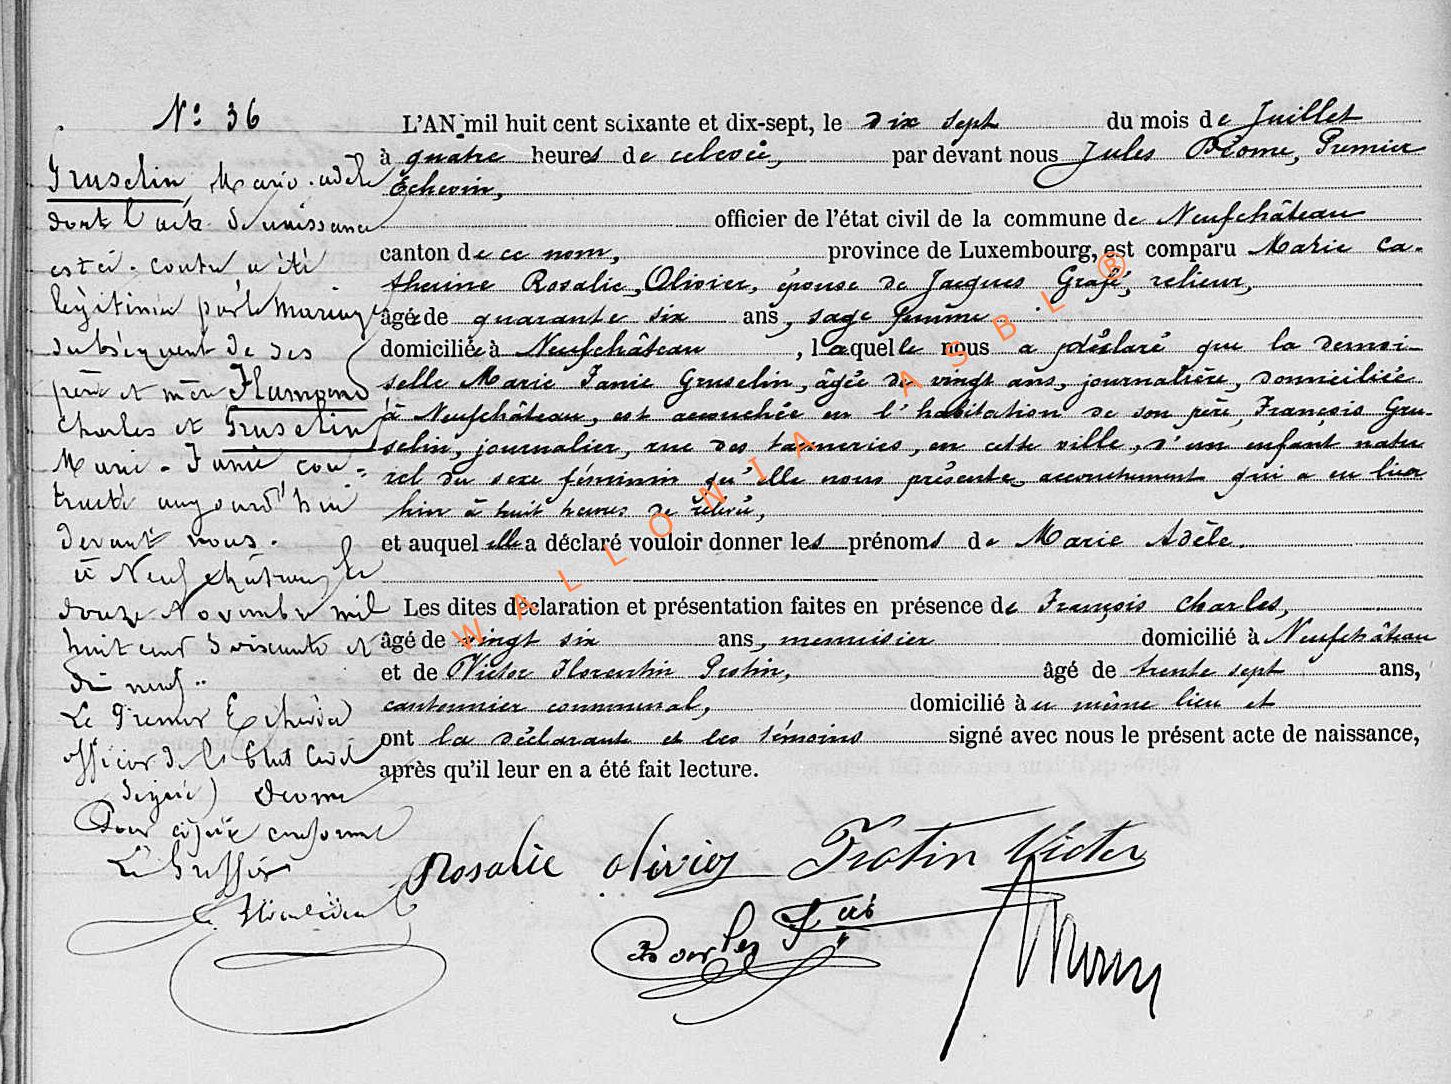 N° 36
Gruselin Marie-Adèle
dont l'acte de naissance
est ci-contre a été
légitimée par le mariage
subséquent de ses
père et mère Flampend
Charles et Gruselin
Marie-Fanie con-
tracté aujourd'hui
devant nous.
à Neufchâteau, le
douze Novembre mil
huit cent soixante et
dix neuf..
Le Premier Echevin
officier de l'Etat Civil
(signé) Déome
Pour copie conforme
Le Greffier
L'AN mil huit cent soixante et dix-sept, le dix sept du mois de Juillet
à quatre heures de relevée, par devant nous Jules Déome, Premier
Echevin,
officier de l'état civil de la commune de Neufchâteau
canton de ce nom, province de Luxembourg, est comparu Marie Ca-
therine Rosalie, Olivier, épouse de Jacques Grafé, relieur,
âgée de quarante six ans, sage femme
domiciliée à Neufchâteau, laquelle nous a déclaré que la demoi-
selle Marie Fanie Gruselin, âgée de vingt ans, journalière, domiciliée
à Neufchâteau, est accouchée en l'habitation de son père, François Gru-
selin, journalier, rue des tanneries, en cette ville, d'un enfant natu
rel du sexe féminin qu'elle nous présente, accouchement qui a eu lieu
hier à huit heures de relevée,
et auquel elle a déclaré vouloir donner les prénoms de Marie Adèle.
Les dites déclaration et présentation faites en présence de François Charles,
âgé de vingt six ans, menuisier domicilié à Neufchâteau
et de Victor Florentin Protin, âgé de trente sept ans,
cantonnier communal, domicilié au même lieu et
ont la déclarante et les témoins signé avec nous le présent acte de naissance,
après qu'il leur en a été fait lecture.
Rosalie Olivier Protin Victor
Charles Fçois Déome
WALLONIA ASBL ®